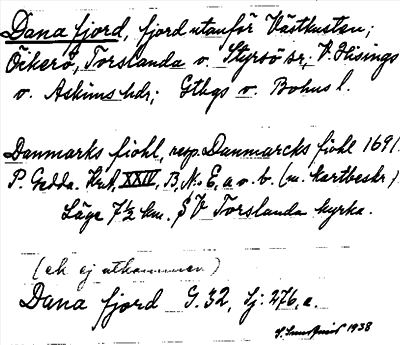 Dana fjord, fjord utanför Västkusten;
Öckerö, Torslanda o. Styrsö sr; V. Hisings
o. Askims hdr; Gtbgs o. Bohus l.
Danmarks fiohl, resp. Danmarcks fiohl 1691.
P. Gedda. Krt. XXIV, B, N. E, a o. b. (m. kartbeskr.)
Läge 7½ km. SV Torslanda kyrka.
(ek ej utkommen)
Dana fjord G. 32, Sj: 276, a.
1938